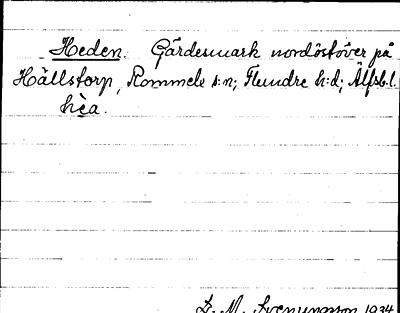 Heden. Gärdesmark nordöstöver på
Hällstorp, Rommele s:n; Flundre h:d; Älfsb.l.
hèa.
D. M. Svenungsson 1934